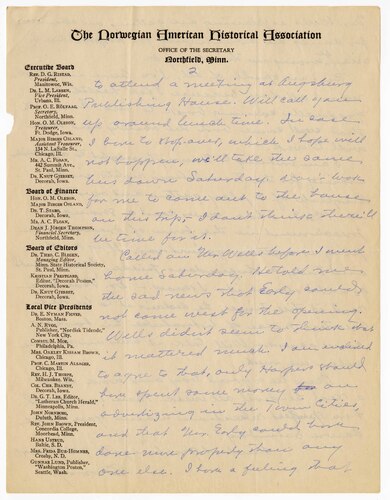 The Norwegian American Historical Association
OFFICE OF THE SECRETARY
Northfield, Minn.
Executive Board
REV. D. G. RISTAD,
President,
Manitowoc, Wis.
DR. L. M. LARSEN,
Vice President,
Urbana, Ill.
PROF. O. E. RÖLVAAG,
Secretary,
Northfield, Minn.
HON. O. M. OLESON,
Treasurer,
Ft. Dodge, Iowa.
MAJOR BIRGER OSLAND,
Assistant Treasurer,
134 N. LaSalle St.,
Chicago, Ill.
MR. A. C. FLOAN,
442 Summit Ave.,
St. Paul, Minn.
DR. KNUT GJERSET,
Decorah, Iowa.
Board of Finance
HON. O. M. OLESON,
MAJOR BIRGER OSLAND,
DR. T. STABO,
Decorah, Iowa.
MR. A. C. FLOAN,
DEAN J. JÖRGEN THOMPSON,
Financial Secretary,
Northfield, Minn.
Board of Editors
DR. THEO. C. BLEGEN,
Managing Editor,
Minn. State Historical Society,
St. Paul, Minn.
KRISTIAN PRESTGARD,
Editor, "Decorah Posten,"
Decorah, Iowa.
DR. KNUT GJERSET,
Decorah, Iowa.
Local Vice Presidents
DR. E. NYMAN FIGVED,
Boston, Mass.
A. N. RYGG,
Publisher, "Nordisk Tidende,"
New York City.
CONSUL M. MOE,
Philadelphia, Pa.
MRS. OAKLEY KISSAM BROWN,
Chicago, Ill.
PROF. C. MARIUS ALSAGER,
Chicago, Ill.
REV. H. J. THORPE,
Milwaukee, Wis.
COL. CHR. BRANDT,
Decorah, Iowa.
DR. G. T. LEE, Editor,
"Lutheran Church Herald,"
Minneapolis, Minn.
JOHN NORTHVEL,
Duluth, Minn.
REV. JOHN BROWN, President,
Concordia College,
Moorhead, Minn.
HANS USTRUD,
Baltic, S. D.
MRS. FRIDA BUE-HOMNES,
Crosby, N. D.
GUNNAR LUND, Publisher,
"Washington Posten,"
Seattle, Wash.
2
to attend a meeting at Augsburg
Publishing House. Will call you
up around lunch time. In case
I have to stop over, which I hope will
not happen, we'll take the same
bus down Saturday. Don't look
for me to come out to the house
on this trip; I don't think there'll
be time for it.
Called on Mr. Wells before I went
home Saturday. He told me
the sad news that Early could
not come west for the opening.
Wells didn't seem to think that
it mattered much. I am inclined
to agree to that, only Harpers should
have spent some money on
advertizing in the Twin Cities,
and that Mr. Early could have
done more properly than any
one else. I have a feeling that